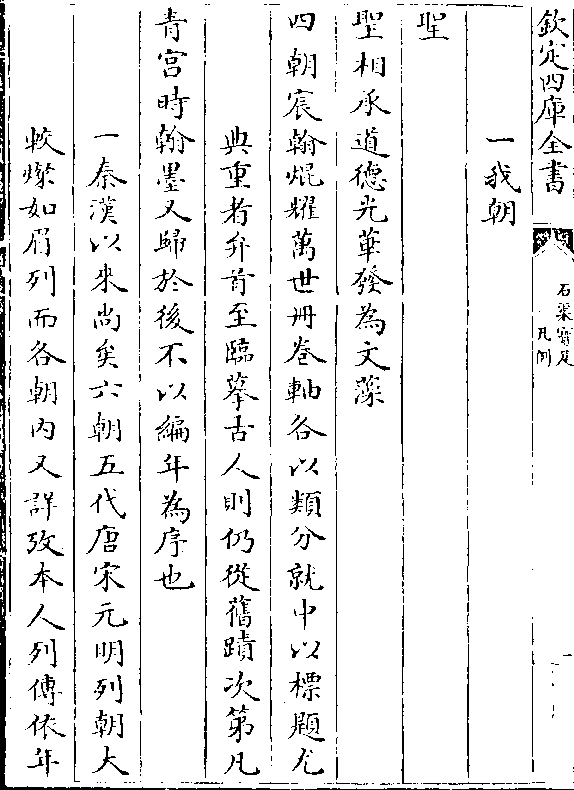 欽定四庫全書
石渠寶笈
凡例
一我朝
聖
聖相承道德光華發為文藻
四朝宸翰焜耀萬世冊卷軸各以類分就中以標題尤
典重者弁首至臨摹古人則仍從舊蹟次第凡
青宮時翰墨又歸於後不以編年為序也
一秦漢以來尚矣六朝五代唐宋元明列朝大
較燦如眉列而各朝內又詳攷本人列傳依年
一